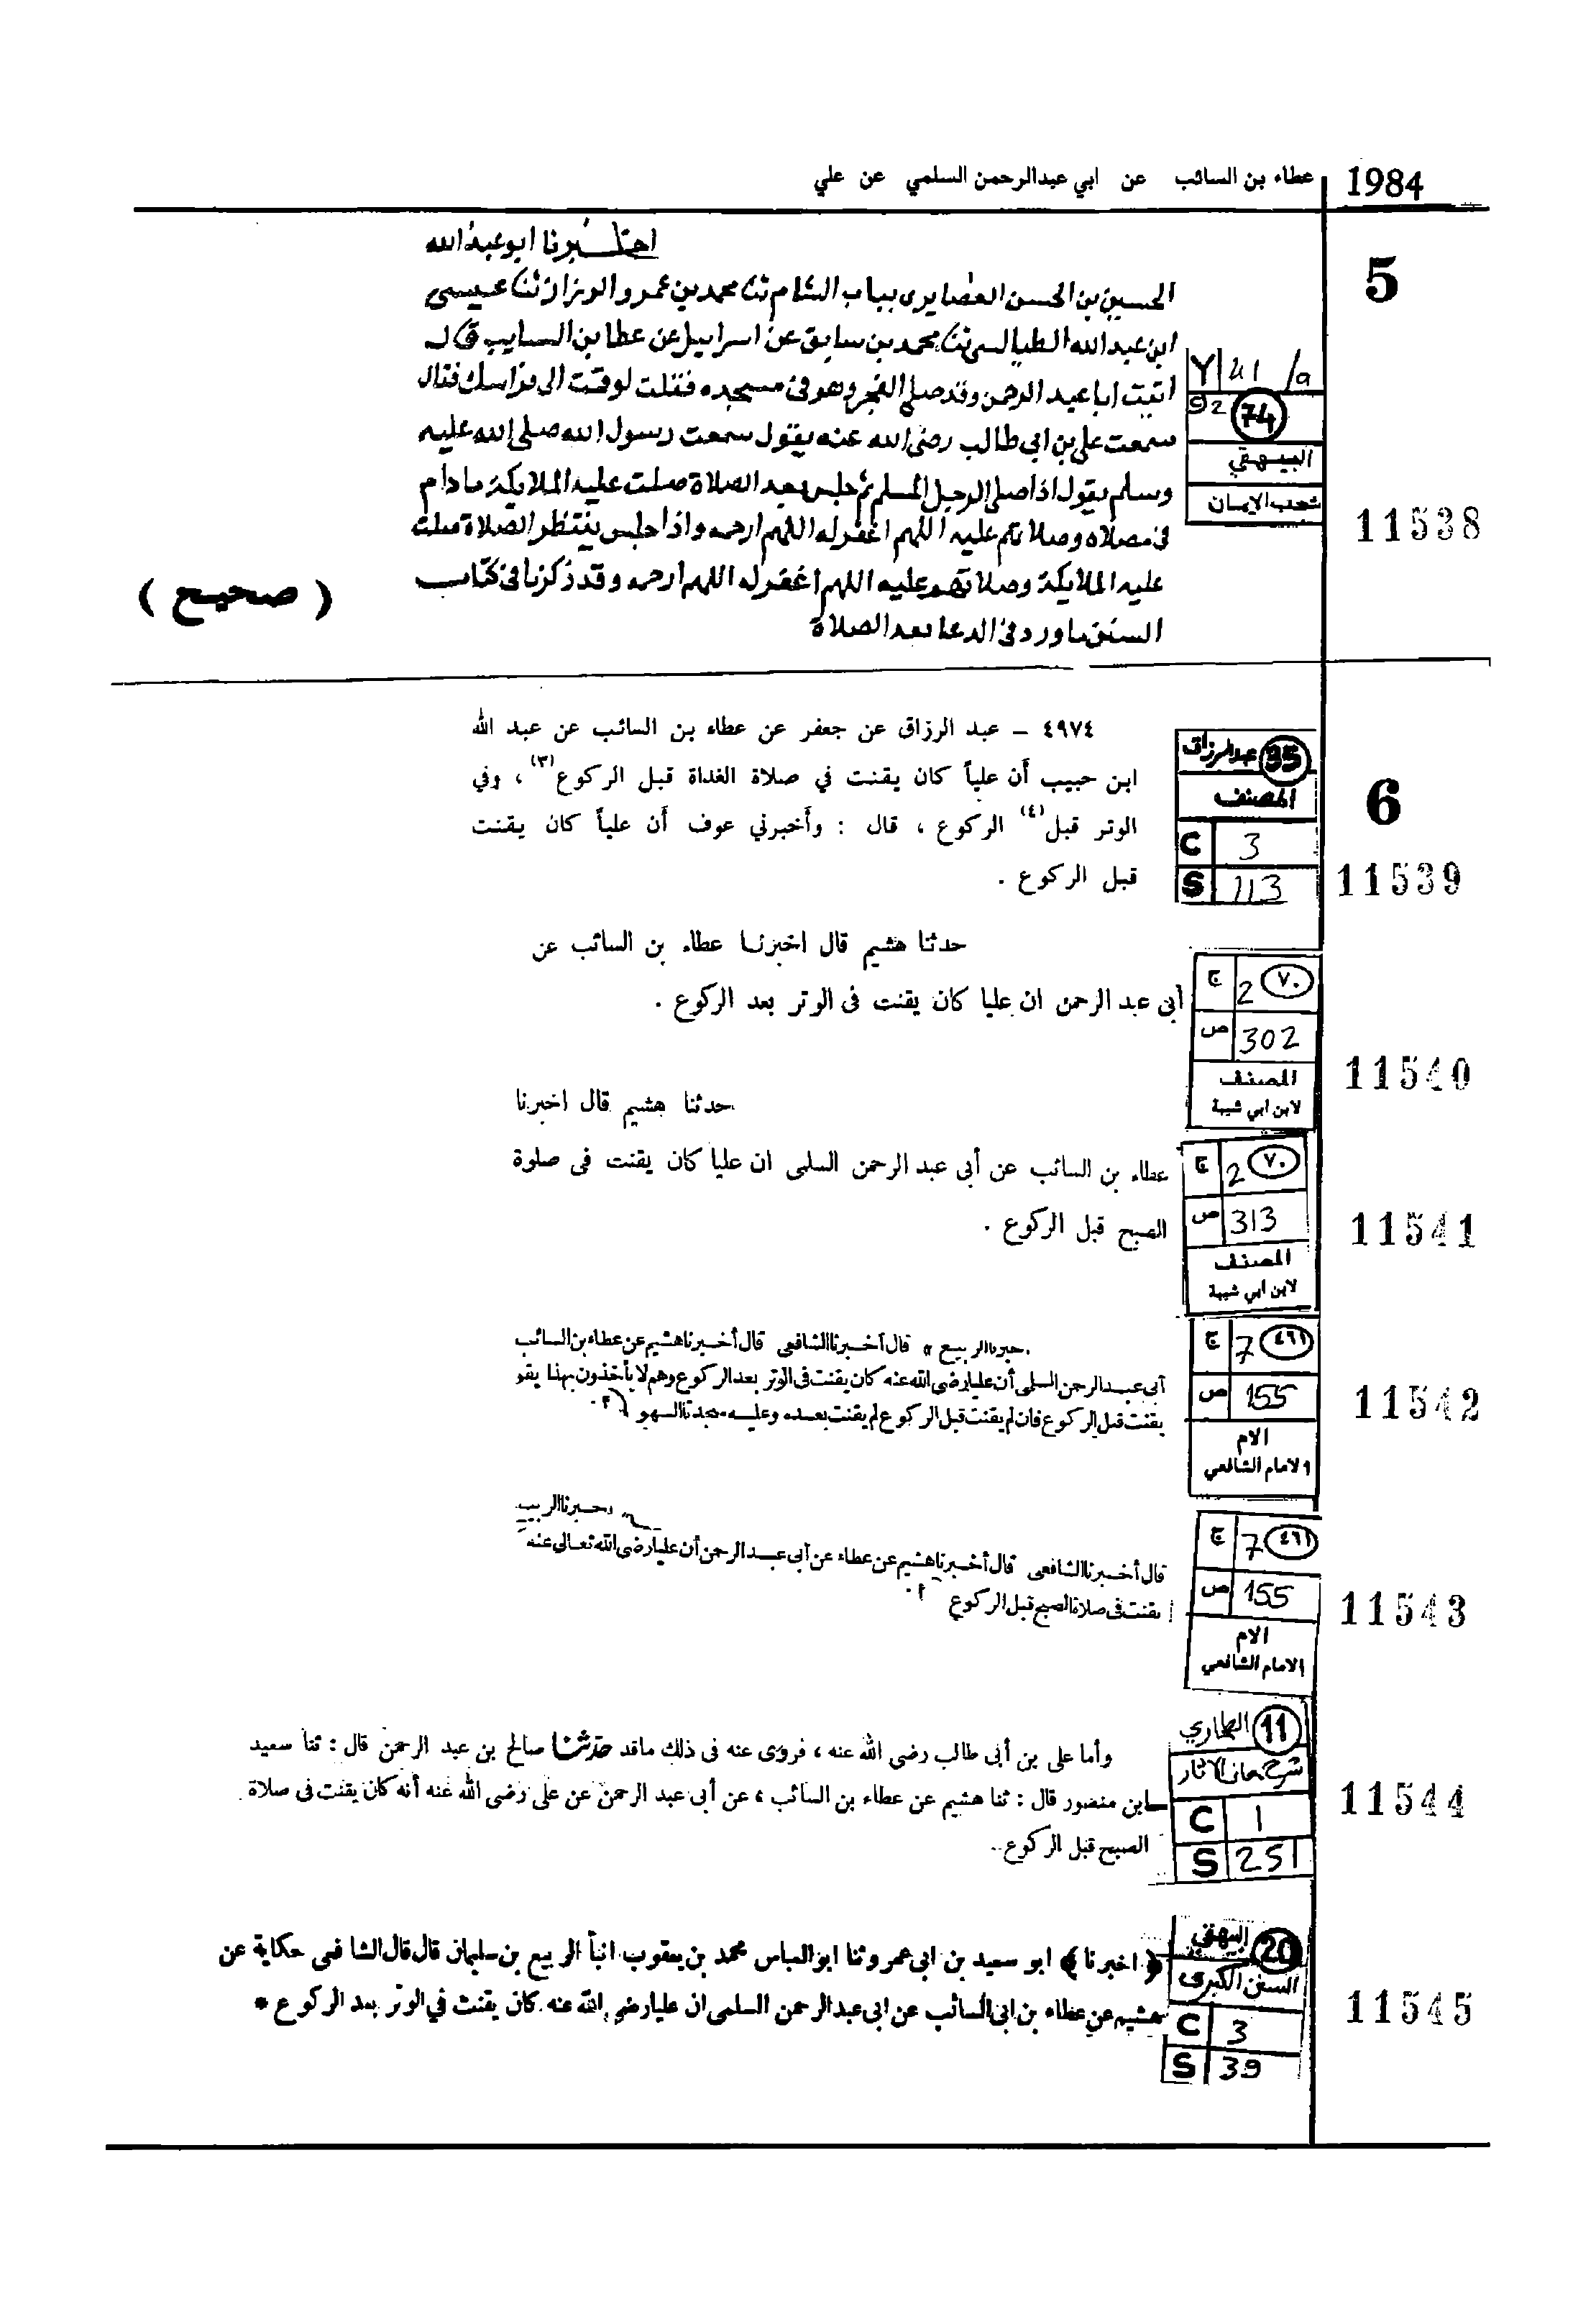 1984
عطاء بن السائب عن ابي عبدالرحمن السلمي عن علي
5
اخبرنا ابو عبد الله
الحسين بن الحسن الغضايري بباب الشام ثنا محمد بن عمرو الرزاز ثنا عيسى
ابن عبد الله الطيالسي ثنا محمد بن سابق عن اسراييل عن عطا بن السايب قال
اتيت ابا عبد الرحمن وقد صلى الفجر وهو في مسجده فقلت لو قمت الى فراشك فقال
سمعت علي بن ابي طالب رضي الله عنه يقول سمعت رسول الله صلى الله عليه
وسلم يقول اذا صلى الرجل المسلم ثم جلس بعد الصلاة صلت عليه الملايكة ما دام
في مصلاه وصلاتهم عليه اللهم اغفر له اللهم ارحمه واذا جلس ينتظر الصلاة صلت
عليه الملايكة وصلاتهم عليه اللهم اغفر له اللهم ارحمه وقد ذكرنا في كتاب
السنن ما ورد في الدعا بعد الصلاة
( صحيح )
Y 41 /a
92 74
البيهقي
شعب الايمان
11538
6
٤٩٧٤ – عبد الرزاق عن جعفر عن عطاء بن السائب عن عبد الله
ابن حبيب أن علياً كان يقنت في صلاة الغداة قبل الركوع (٣) ، وفي
الوتر قبل (٤) الركوع ، قال : وأخبرني عوف أن علياً كان يقنت
قبل الركوع .
35 عبدالرزاق
المصنف
C 3
S 113
11539
حدثنا هشيم قال اخبرنا عطاء بن السائب عن
أبى عبد الرحمن ان عليا كان يقنت فى الوتر بعد الركوع .
ج 2 ٧٠
ص 302
المصنف
لابن ابي شيبة
11540
حدثنا هشيم قال اخبرنا
عطاء بن السائب عن أبى عبد الرحمن السلمى ان عليا كان يقنت فى صلوة
الصبح قبل الركوع .
ج 2 ٧٠
ص 313
المصنف
لابن ابي شيبة
11541
خبرنا الربيع قال أخبرنا الشافعى قال أخبرنا هشيم عن عطاء بن السائب
أبى عبد الرحمن السلمى أن عليا رضى الله عنه كان يقنت فى الوتر بعد الركوع وهم لا يأخذون بهذا يقو
يقنت قبل الركوع فان لم يقنت قبل الركوع لم يقنت بعده وعليه سجدتا السهو
ج 7 ٤٦١
ص 155
الام
لامام الشافعي
11542
خبرنا الربيـ
قال أخبرنا الشافعى قال أخبرنا هشيم عن عطاء عن أبى عبد الرحمن أن عليا رضى الله تعالى عنه
يقنت فى صلاة الصبح قبل الركوع
ج 7 ٤٦١
ص 155
الام
الامام الشافعي
11543
وأما على بن أبى طالب رضى الله عنه ، فروى عنه فى ذلك ماقد حدثنا صالح بن عبد الرحمن قال : ثنا سعيد
ابن منصور قال : ثنا هشيم عن عطاء بن السائب ، عن أبى عبد الرحمن عن على رضى الله عنه أنه كان يقنت فى صلاة
الصبح قبل الركوع
11 الطحاوي
شرح معاني الاثار
C 1
S 251
11544
﴿ اخبرنا ﴾ ابو سعيد بن ابى عمرو ثنا ابو العباس محمد بن يعقوب انبأ الربيع بن سليمان قال قال الشافعى حكاية عن
هشيم عن عطاء بن ابى السائب عن ابى عبد الرحمن السلمى ان عليا رضى الله عنه كان يقنت في الوتر بعد الركوع *
20 البيهقي
السنن الكبرى
C 3
S 39
11545